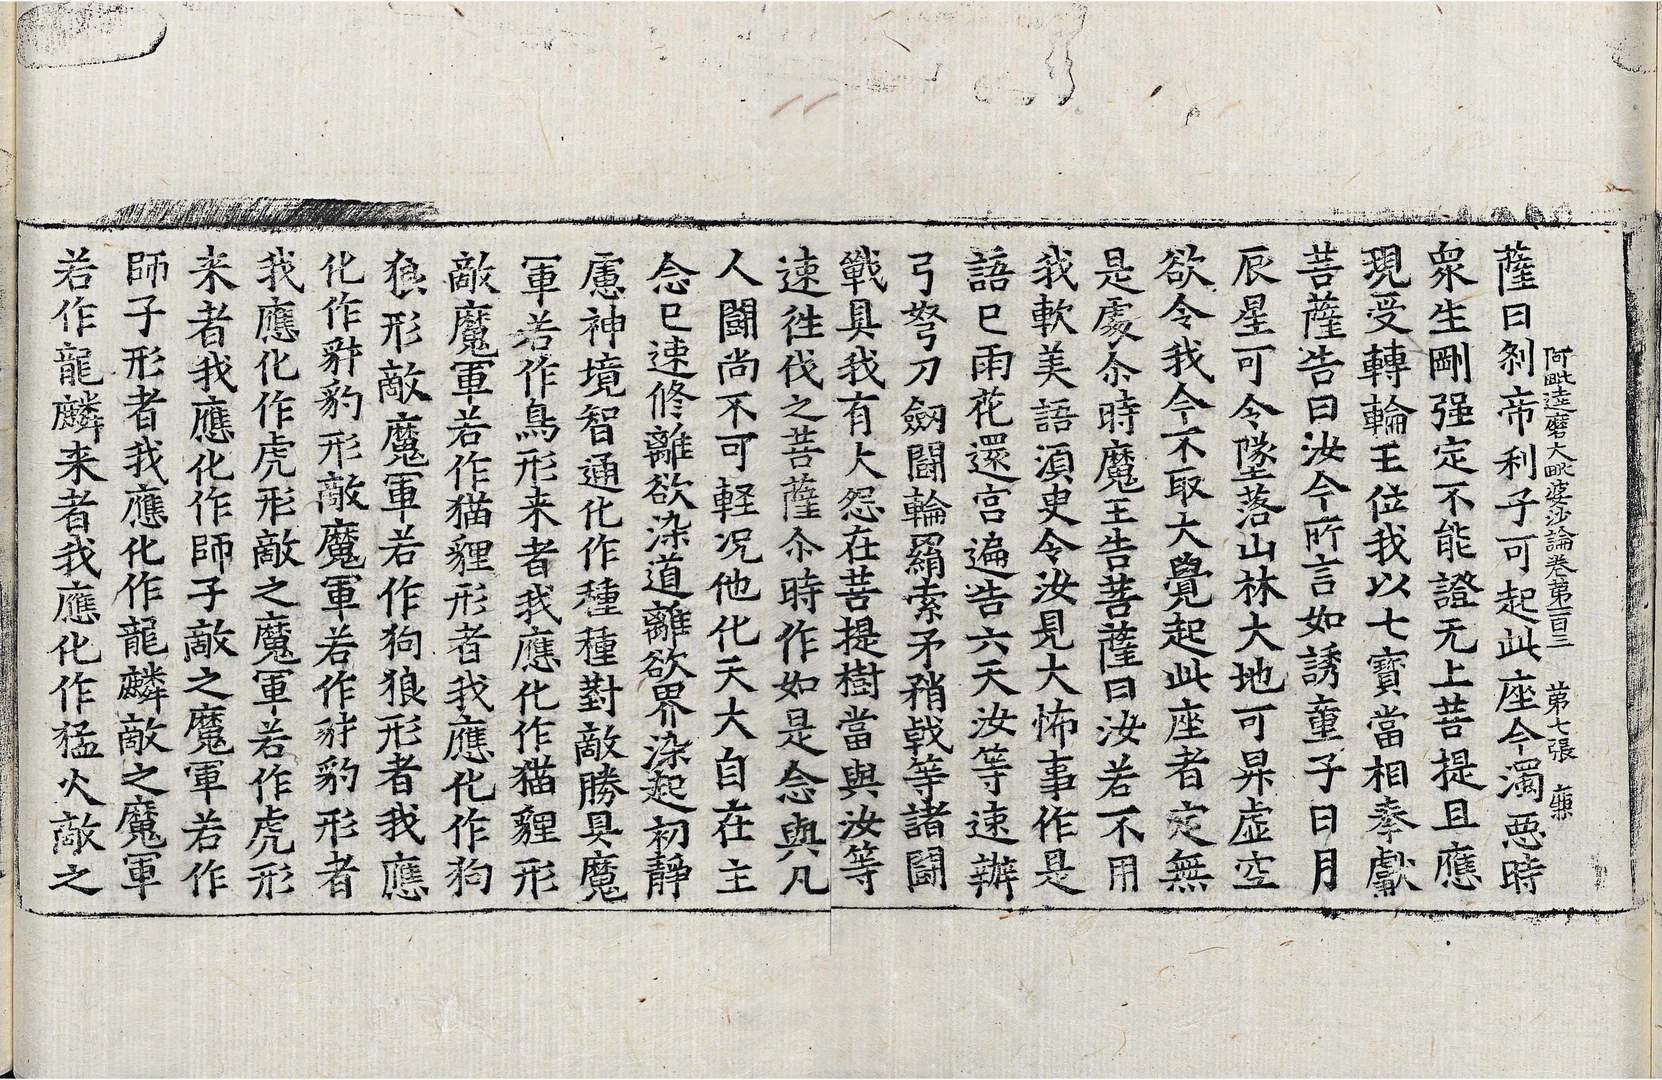 阿毗達磨大毗婆沙論卷第一百三　第七張
薩曰刹帝利子可起此座今濁惡時
衆生剛强定不能證无上菩提且應
現受轉輪王位我以七寶當相奉獻
菩薩告曰汝今所言如誘童子日月
辰星可令墜落山林大地可昇虛空
欲令我今不取大覺起此座者定無
是處尒時魔王告菩薩曰汝若不用
我軟美語湏臾令汝見大怖事作是
語已雨花還宮遍告六天汝等速辦
弓弩刀劒鬪輪羂索矛矟戟等諸鬪
戰具我有大怨在菩提樹當與汝等
速往伐之菩薩尒時作如是念與凡
人鬪尚不可軽况他化天大自在主
念已速修離欲染道離欲界染起初靜
慮神境智通化作種種對敵勝具魔
軍若作鳥形来者我應化作猫貍形
敵魔軍若作猫貍形者我應化作狗
狼形敵魔軍若作狗狼形者我應
化作犲豹形敵魔軍若作犲豹形者
我應化作虎形敵之魔軍若作虎形
来者我應化作師子敵之魔軍若作
師子形者我應化作龍麟敵之魔軍
若作龍麟来者我應化作猛火敵之